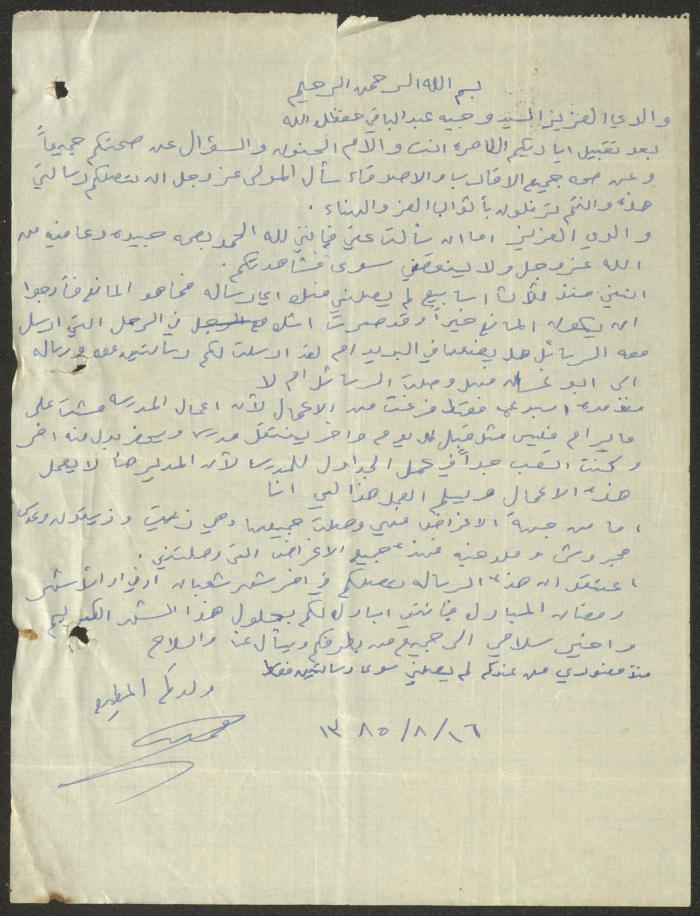 بسم الله الرحمن الرحيم
والدي العزيز السيد وجيه عبد الباقي حفظك الله
بعد تقبيل اياديكم الطاهره انت والام الحنون والسؤال عن صحتكم جميعاً
وعن صحه جميع الاقارب والاصدقاء سأل المولى عز وجل ان تصلكم رسالتي
هذه وانتم ترفلون بأثواب العز والهناء .
والدي العزيز اما ان سألت عني فإنني لله الحمد بصحه جيده وعافيه من
الله عز وجل ولا ينقصني سوى مشاهدتكم .
انني منذ ثلاث اسابيع لم يصلني منك اي رساله فما هو المانع فأرجوا
ان يكون المانع خيراً وقد صرت اشك في الرجل الذي ارسل
معه الرسائل هل يضعها في البريد ام لا لقد ارسلت لكم رسالتين معه ورساله
الى ابو غسان فهل وصلت الرسائل ام لا
منذ مدة اسبوع فقط فرغت من الاعمال لأن اعمال المدرسه مشت على
ما يرام فليس مثل قبل كل يوم واخر ينتقل مدرس ويحضر بدل منه اخر
وكنت اتعب جداً في عمل الجداول للمدرسه لأن المدير هنا لا يعمل
هذه الاعمال ويسلم العمل هذا لي انا
اما من جهة الاغراض فهي وصلت جميعها وهي زيت وزيتون وعدس
مجروش وملوخيه فهذه جميع الاغراض التي وصلتني .
اعتقد ان هذه الرساله تصلكم في اخر شهر شعبان او في اوائل شهر
رمضان المبارك فإنني ابارك لكم بحلول هذا الشهر الكريم
واخير سلامي الى جميع من بطرفكم ويسأل عنا والسلام
منذ مغادرتي من عندكم لم يصلني سوى رسالتين فقط
ولدكم المطيع
١٣٨٥/٨/٢٦